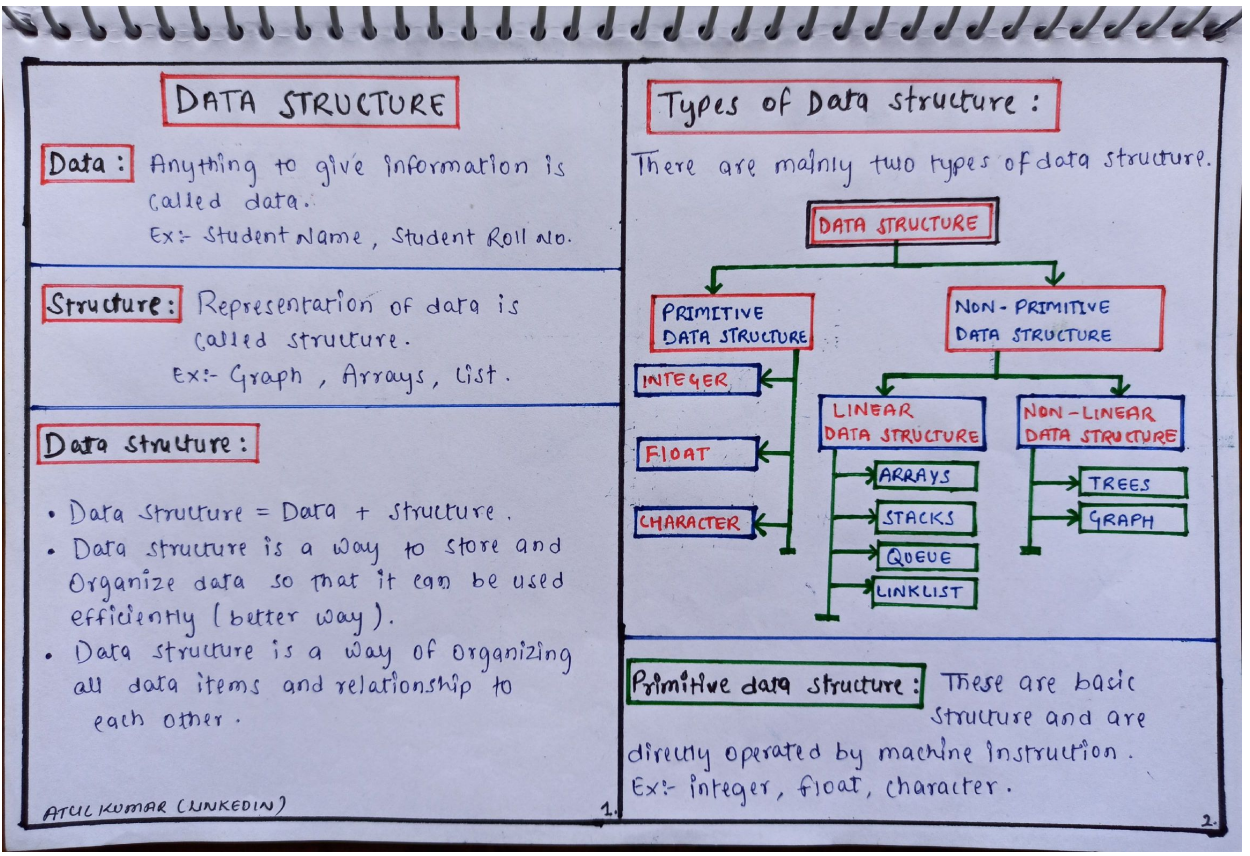 DATA STRUCTURE
Data : Anything to give information is
called data.
Ex:- Student Name, Student Roll No.
Structure : Representation of data is
called structure.
Ex:- Graph, Arrays, List.
Data structure :
• Data structure = Data + structure.
• Data structure is a way to store and
Organize data so that it can be used
efficiently (better way).
• Data structure is a way of organizing
all data items and relationship to
each other.
ATUL KUMAR (LINKEDIN)
1.
Types of Data structure :
There are mainly two types of data structure.
DATA STRUCTURE
PRIMITIVE
DATA STRUCTURE
INTEGER
FLOAT
CHARACTER
NON-PRIMITIVE
DATA STRUCTURE
LINEAR
DATA STRUCTURE
ARRAYS
STACKS
QUEUE
LINKLIST
NON-LINEAR
DATA STRUCTURE
TREES
GRAPH
Primitive data structure : These are basic
structure and are
directly operated by machine instruction.
Ex:- integer, float, character.
2.